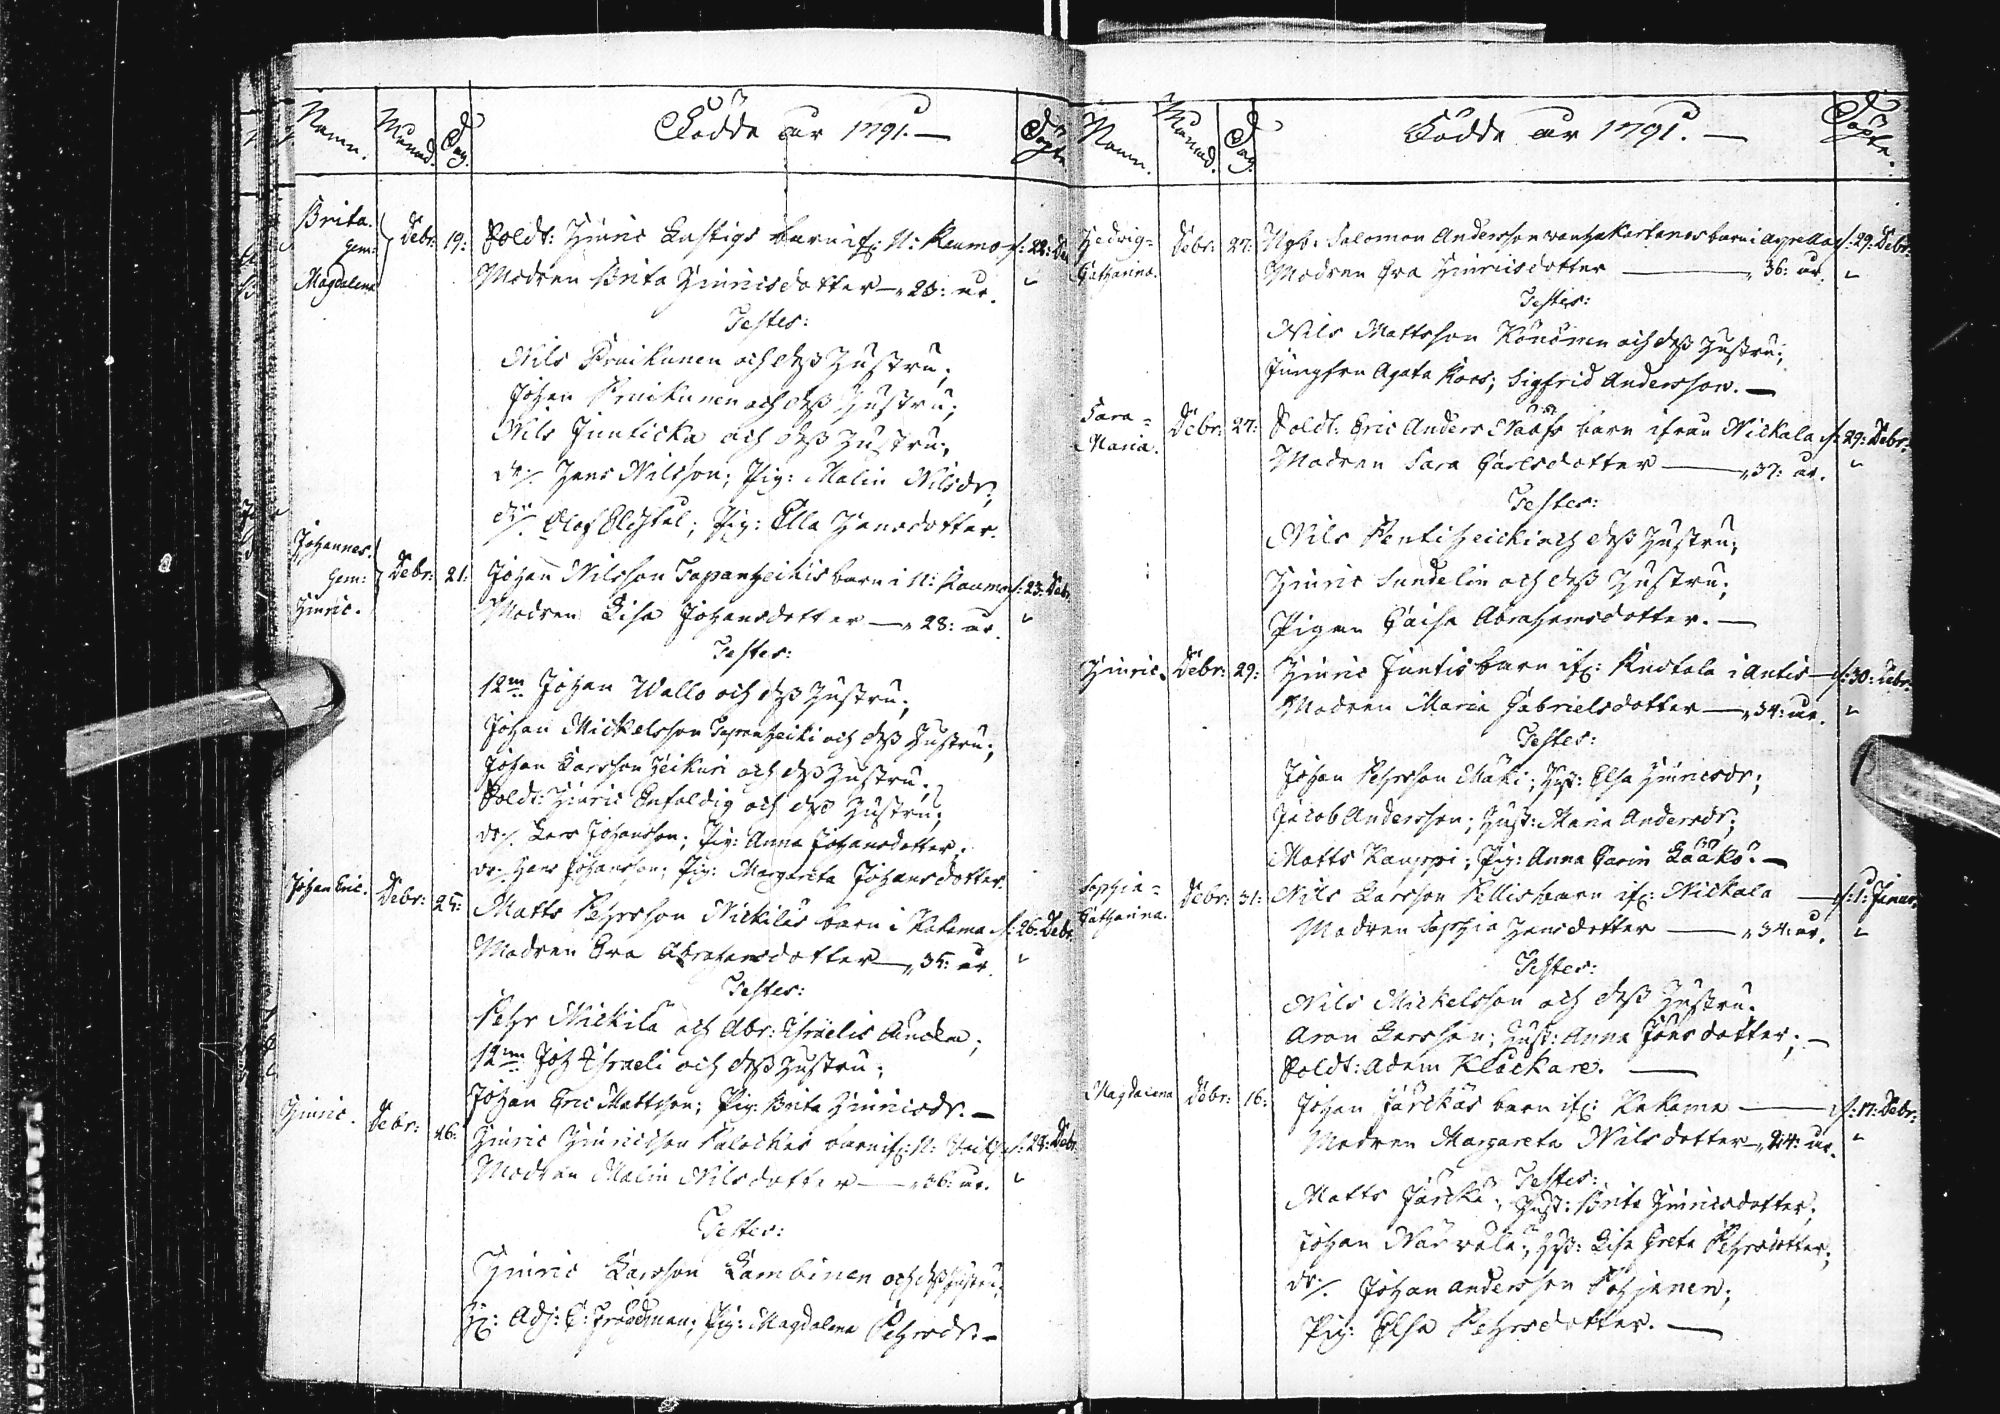 Namn. Månad. Dag. Födde åår 1791. — Döpte
Brita. gem: Magdalena Debr: 19: Soldt: Hinric Lustigs barn ifr: N: Raumo d: 22: De
Modren Brita Hinricsdotter — 23: år.
Testes:
Nils Pruikunen och dess Hustru;
Johan Pruikunen och dess Hustru;
Nils Junticka och dess Hustru,
dr/. Hans Nilsson; Pig: Malin Nilsdr;
dr/. Olof; Pig: Ella Hansdotter.
Johannes. gem: Hinric. Debr: 21: Johan Nilsson Tapanheikis barn i N: Raumo d: 23: Debr.
Modren Lisa Johansdotter — 28: år.
Testes:
12m Johan Wallo och dess Hustru;
Johan Mickelsson Tapanheiki och dess Hustru;
Johan Larsson Heikuri och dess Hustru;
Soldt: Hinric Enfaldig och dess Hustru;
dr/. Lars Johansson; Pig: Anna Johansdotter;
dr. Hans Johansson; Pig: Margareta Johansdotter.
Johan Eric. Debr: 25: Matts Pehrsson Nickiläs barn i Kakama d: 26: Debr.
Modren Eva Abrahamsdotter — 35: år.
Testes:
Pehr Nickilä och Abr: Israelis Änckn;
12m Joh Israeli och dess Hustru;
Johan Eric Mattsson; Pig: Brita Hinricsdr: —
Hinric. Debr: 26: Hinric Hinricsson barn ifr: N: d: 28: Debr
Modren Malin Nilsdotter — 36: år.
Testes:
Hinric Larsson Lambinen och dess Hustru;
Hr: Adj: E: Frodman; Pig: Magdalena Pehrsdr: —
Namn. Månad. Dag. Födde åår 1791. — Döpte.
Hedvig= Catharina. Debr: 27: Nyb: Salomon Andersson barn i d: 29: Debr:
Modren Eva Hinricsdotter — 36: år.
Testes:
Nils Mattsson Könönen och dess Hustru;
Jungfru Agata Roos; Sigfrid Andersson. —
Sara= Maria. Debr: 27: Soldt: Eric Anders barn ifrån Nickala d: 29: Debr:
Modren Sara Carlsdotter — 37: år.
Testes:
Nils Pentiheicki och dess Hustru;
Hinric Sundelin och dess Hustru;
Pigan Caisa Abrahamsdotter. —
Hinric. Debr: 29: Hinric Juntis barn ifr: i Antis — d: 30: Debr:
Modren Maria Gabrielsdotter — 34: år.
Testes:
Johan Pehrsson Mäki; Hust: Elsa Hinricsdr;
Jacob Andersson; Hust: Maria Andersdr;
Matts Kauppi; Pig: Anna Carin Lääkö. —
Sophia= Catharina. Debr: 31: Nils Larsson Pellis barn ifr: Nickala — d: 1: Januar.
Modren Sophia Hansdotter — 34: år.
Testes:
Nils Mickelsson och dess Hustru.
Aron Larsson; Hust: Anna Jönsdotter; —
Soldt: Adam Klockare. —
Magdalena Debr: 16: Johan Järckäs barn ifr: Kakama — d: 17: Debr:
Modren Margareta Nilsdotter — 24: år.
Testes:
Matts Järckä; Hust: Brita Hinricsdotter;
Johan Närvälä; Hust: Lisa Greta Pehrsdotter;
dr/. Johan Andersson Pohjanen;
Pig: Elsa Pehrsdotter. —